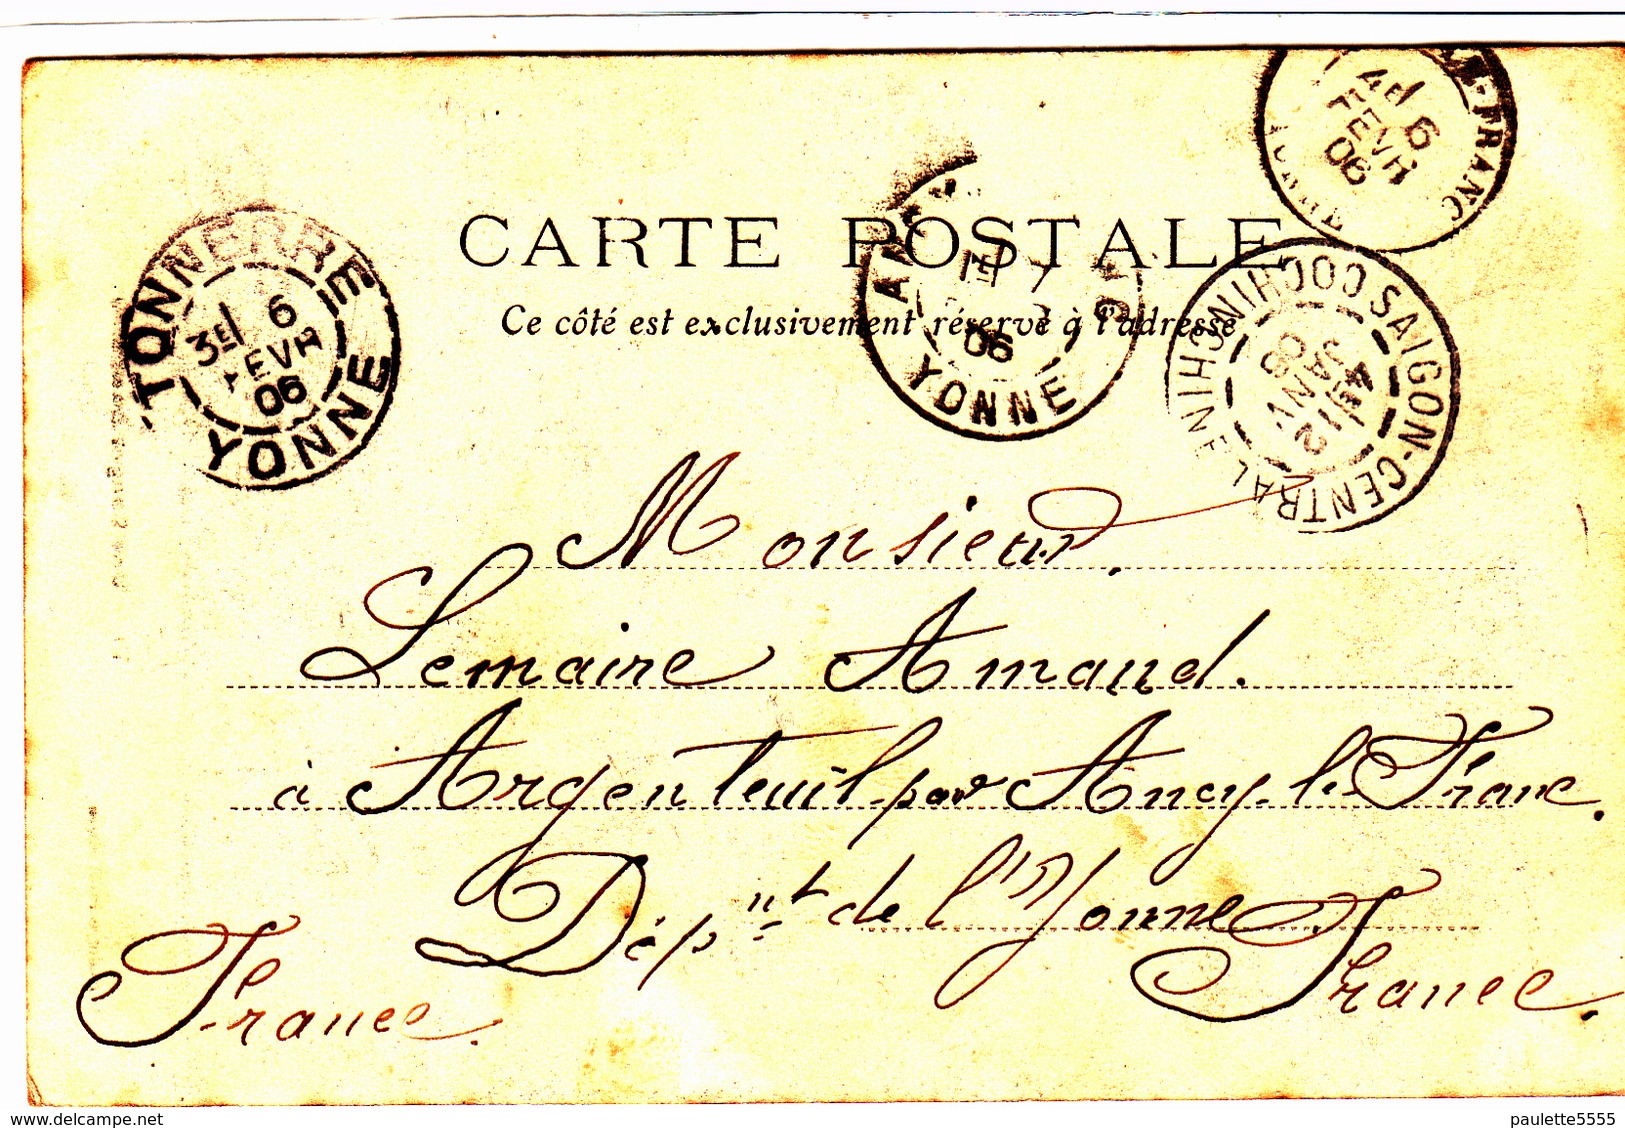 CARTE POSTALE
Ce côté est exclusivement réservé à l'adresse
TONNERRE
3E/ 6
FEVR
06
YONNE
1E/ 7
06
YONNE
4E/ 6
FEVR
06
-FRANC
SAIGON-CENTRAL
COCHINCHINE
4E/ 12
JANV
06
Monsieur.
Lemaire Amand.
à Argenteuil par Ancy-le-Franc.
Dép.nt de l'Yonne
France.
France.
delcampe.net
paulette5555